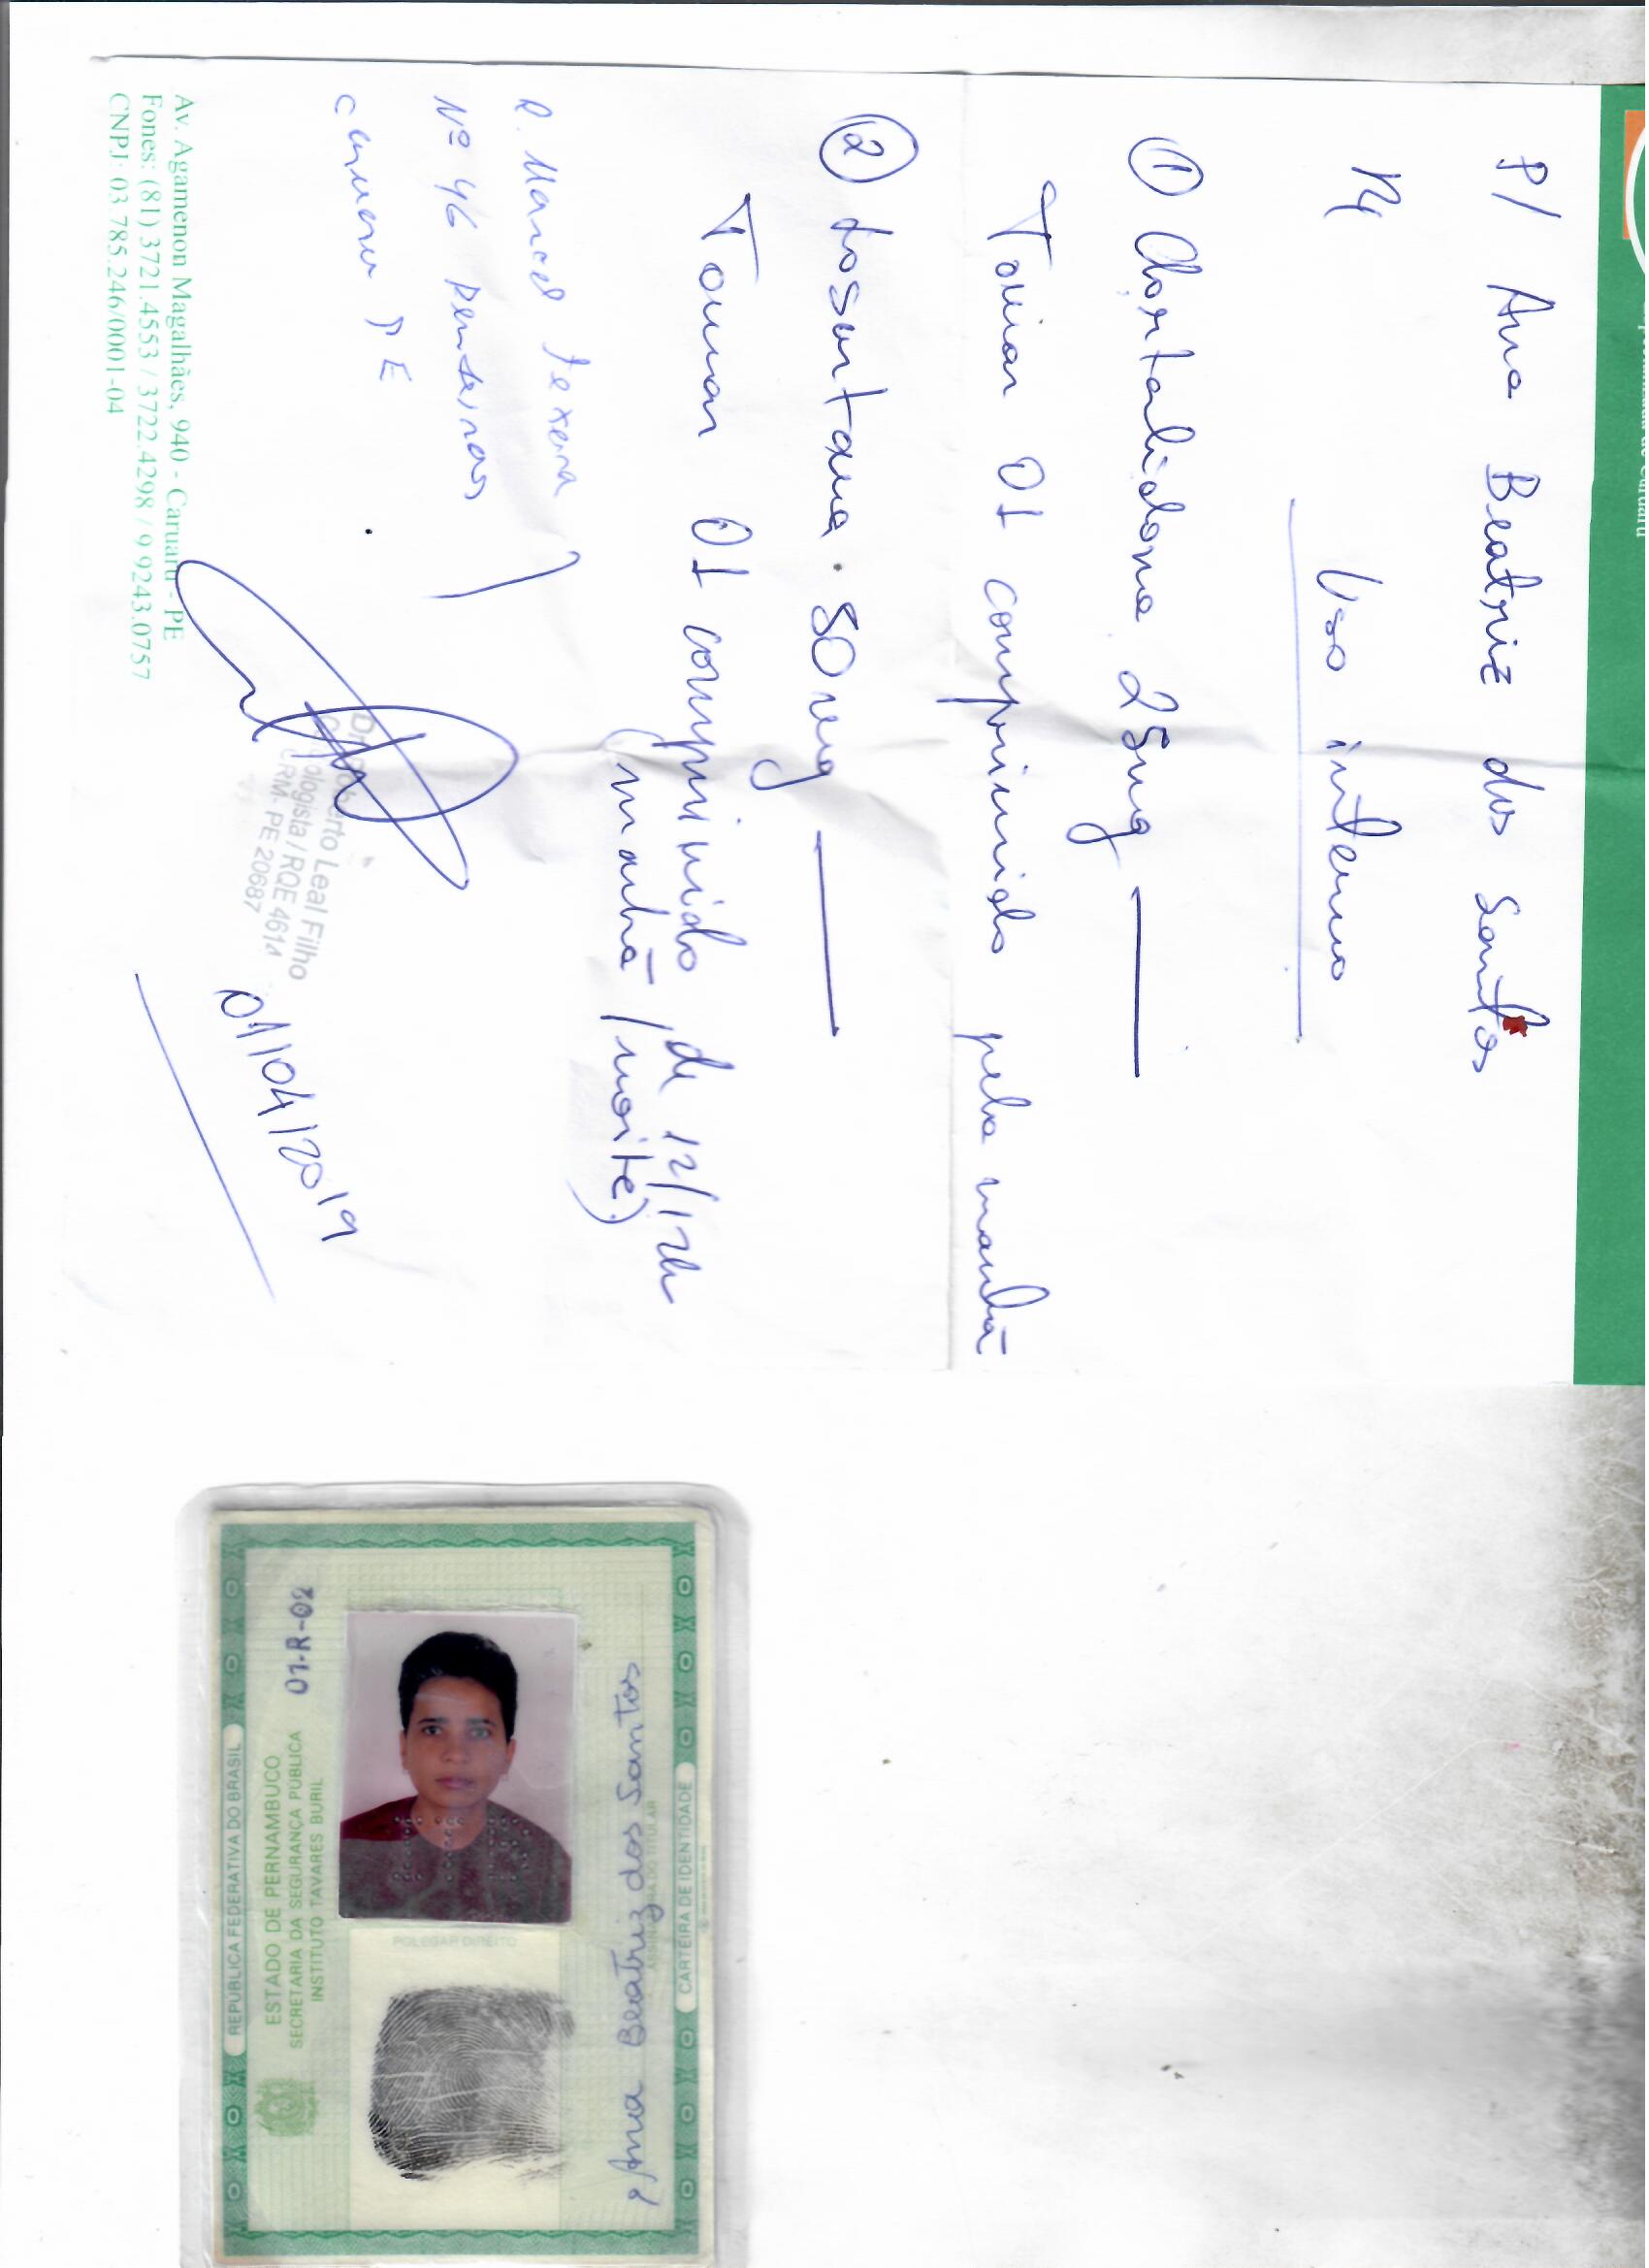 P/ Ana Beatriz dos Santos
Uso interno
① Clortalidona 25mg
Tomar 01 comprimido pela manhã
② Losartana. 50mg
Tomar 01 comprimido de 12/12h
(manhã / noite).
R. Manoel Texera
Nº 46
Caruaru PE
Leal Filho
RQE 4614
CRM. PE 20687
01/04/2019
Av. Agamenon Magalhães, 940 - Caruaru - PE
Fones: (81) 3721.4553 / 3722.4298 / 9 9243.0757
CNPJ: 03.785.246/0001-04
REPÚBLICA FEDERATIVA DO BRASIL
ESTADO DE PERNAMBUCO
SECRETARIA DA SEGURANÇA PÚBLICA
INSTITUTO TAVARES BURIL
01-R-02
POLEGAR DIREITO
Ana Beatriz dos Santos
ASSINATURA DO TITULAR
CARTEIRA DE IDENTIDADE